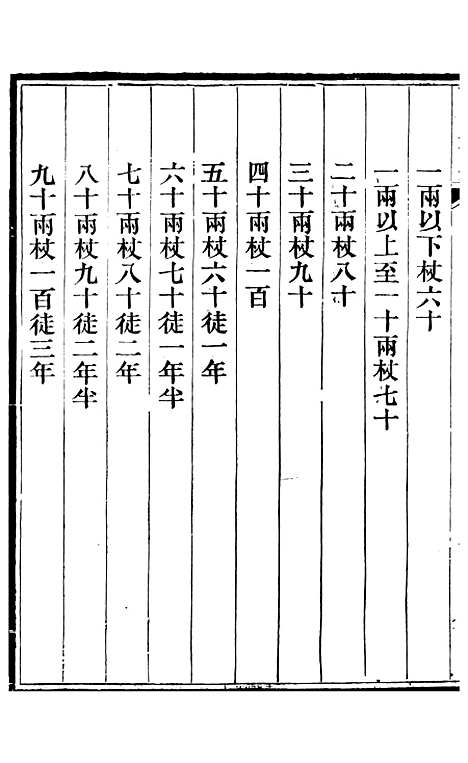 一兩以下杖六十
一兩以上至一十兩杖七十
二十兩杖八十
三十兩杖九十
四十兩杖一百
五十兩杖六十徒一年
六十兩杖七十徒一年半
七十兩杖八十徒二年
八十兩杖九十徒二年半
九十兩杖一百徒三年